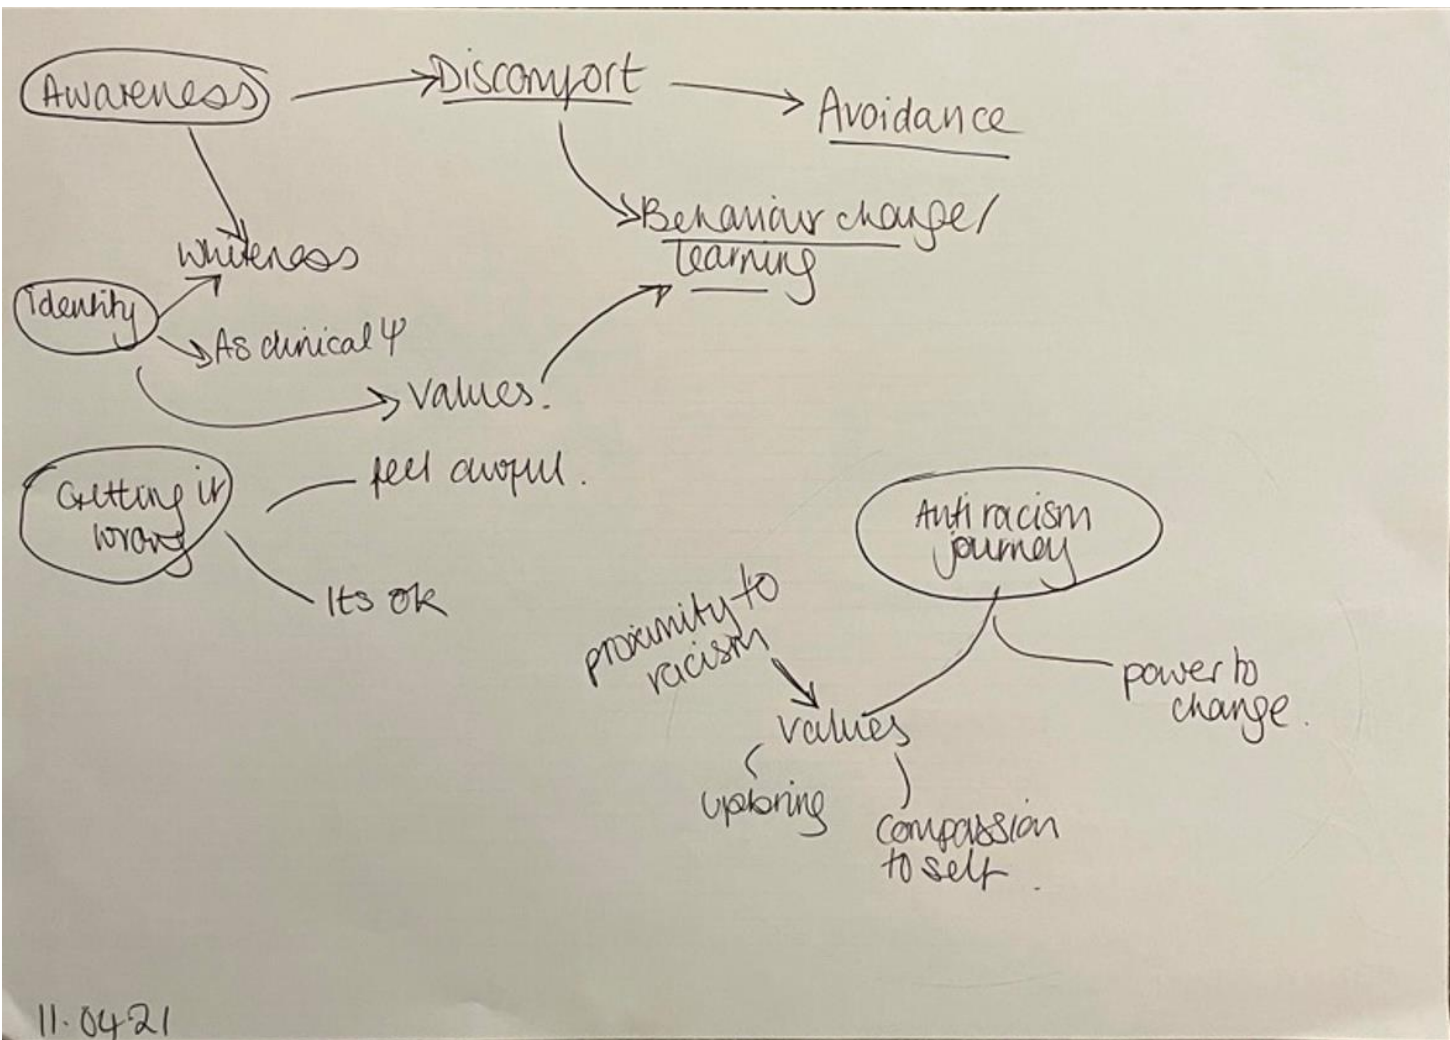 Awareness
Discomfort
Avoidance
Behaviour change/
learning
Whiteness
identity
As clinical Ψ
Values.
Getting it
wrong
feel awful.
Its ok
Anti racism
journey
proximity to
racism
power to
change.
values
upbring
compassion
to self.
11.04.21